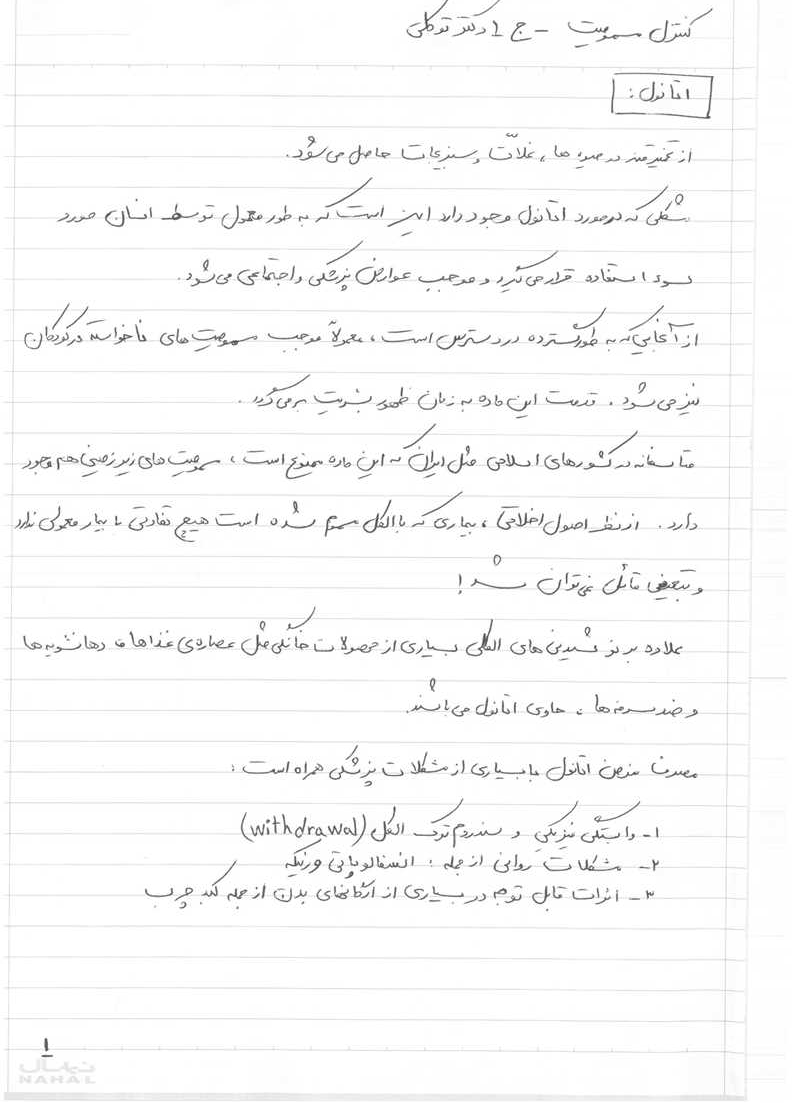 کنترل مسمومیت - ج 1 دکتر توکلی
اتانول:
از تخمیر قند در میوه ها، غلات و سبزیجات حاصل می شود.
مشکلی که درمورد اتانول وجود دارد این است که به طور معمول توسط انسان مورد
سوء استفاده قرار می گیرد و موجب عوارض پزشکی و اجتماعی می شود.
از آنجایی که به طور گسترده در دسترس است، معمولاً موجب مسمومیت های ناخواسته در کودکان
نیز می شود. قدمت این ماده به زمان ظهور بشریت برمی گردد.
متاسفانه در کشورهای اسلامی مثل ایران که این ماده ممنوع است، مسمومیت های زیرزمینی هم وجود
دارد. از نظر اصول اخلاقی، بیماری که با الکل مسموم شده است هیچ تفاوتی با بیمار معمولی ندارد
و تبعیضی قائل نمی توان شد!
علاوه بر نوشیدنی های الکلی بسیاری از محصولات خانگی مثل عصاره ی غذاها، دهانشویه ها
و ضد سرفه ها، حاوی اتانول می باشند.
مصرف مزمن اتانول با بسیاری از مشکلات پزشکی همراه است:
۱- وابستگی فیزیکی و سندروم ترک الکل (withdrawal)
۲- مشکلات روانی از جمله: انسفالوپاتی ورنیکه
۳- اثرات قابل توجه در بسیاری از ارگانهای بدن از جمله کبد چرب
۱
نهال
NAHAL